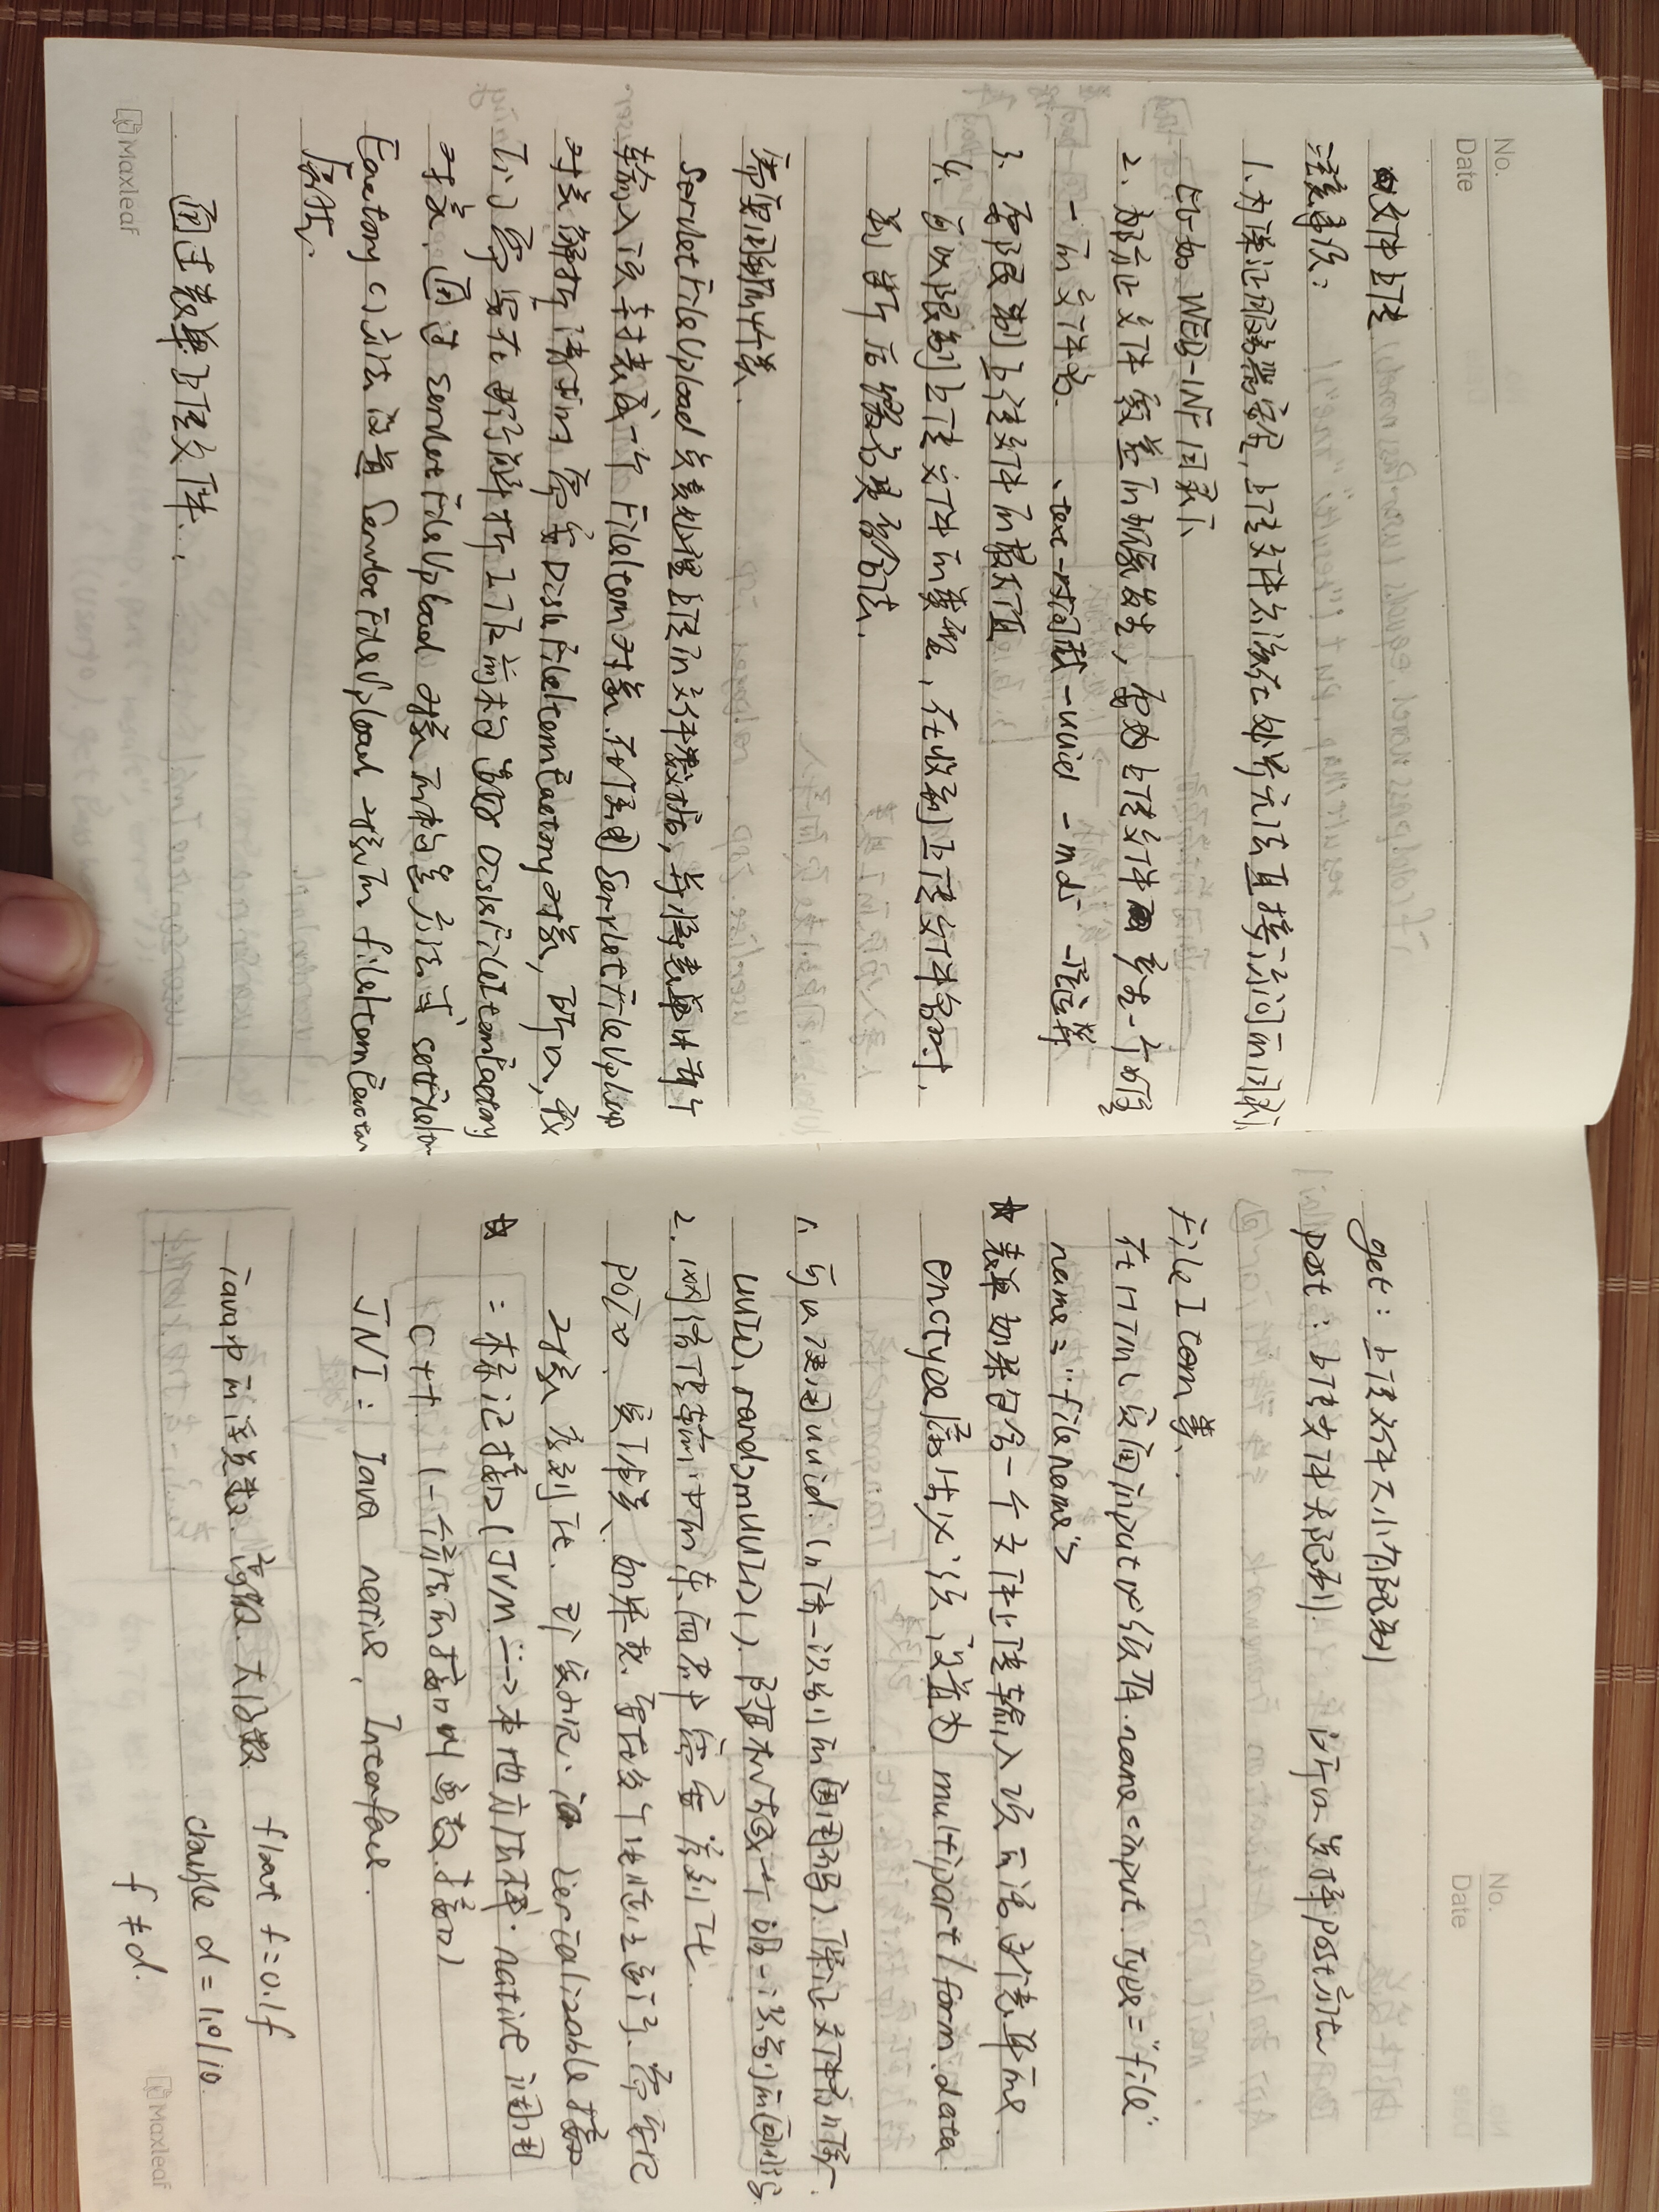 No.
Date
文件上传
注意事项：
1.为保证服务器安全，上传文件应该在外界无法直接访问的目录
比如WEB-INF目录下
2.为防止文件覆盖的现象发生，要为上传文件产生一个唯
一的文件名. -时间戳-uuid -md5 -位运算
3.要限制上传文件的最大值
4.可以限制上传文件的类型，在收到上传文件名时、
判断后缀名是否合法.
需要用到的类.
ServletFileUpload负责处理上传的文件数据，并将表单中每个
输入项封装成一个FileItem对象.在使用ServletFileUpload
对象解析请求时需要DiskFileItemFactory对象，所以，我
们需要在进行解析工作前构造好DiskFileItemFactory
对象.通过ServletFileUpload对象的构造方法或setFileItem
Factory()方法设置ServletFileUpload对象的fileItemFactory
属性.
通过表单上传文件.
Maxleaf
No.
Date
get：上传文件大小有限制
post：上传文件无限制. 所以选择post方法
FileItem类.
在HTML页面input必须有.name<input type="file"
name="filename">
表单如果包含一个文件上传输入项的话这个表单的
enctype属性必须设置为 multipart/form-data
1.可以使用uuid.(唯一识别的通用码).保证文件名唯一.
UUID.randomUUID().随机生成一个唯一识别的通用码.
2.网络传输中的东西都需要序列化.
POJO、实体类、如果想要在多个电脑上运行、需要把
对象序列化. Serializable接口
=标记接口(JVM-->本地方法栈. native 调用
C++.
JNI：Java native Interface.
float f=0.1f
double d=1.0/10.
f≠d.
Maxleaf